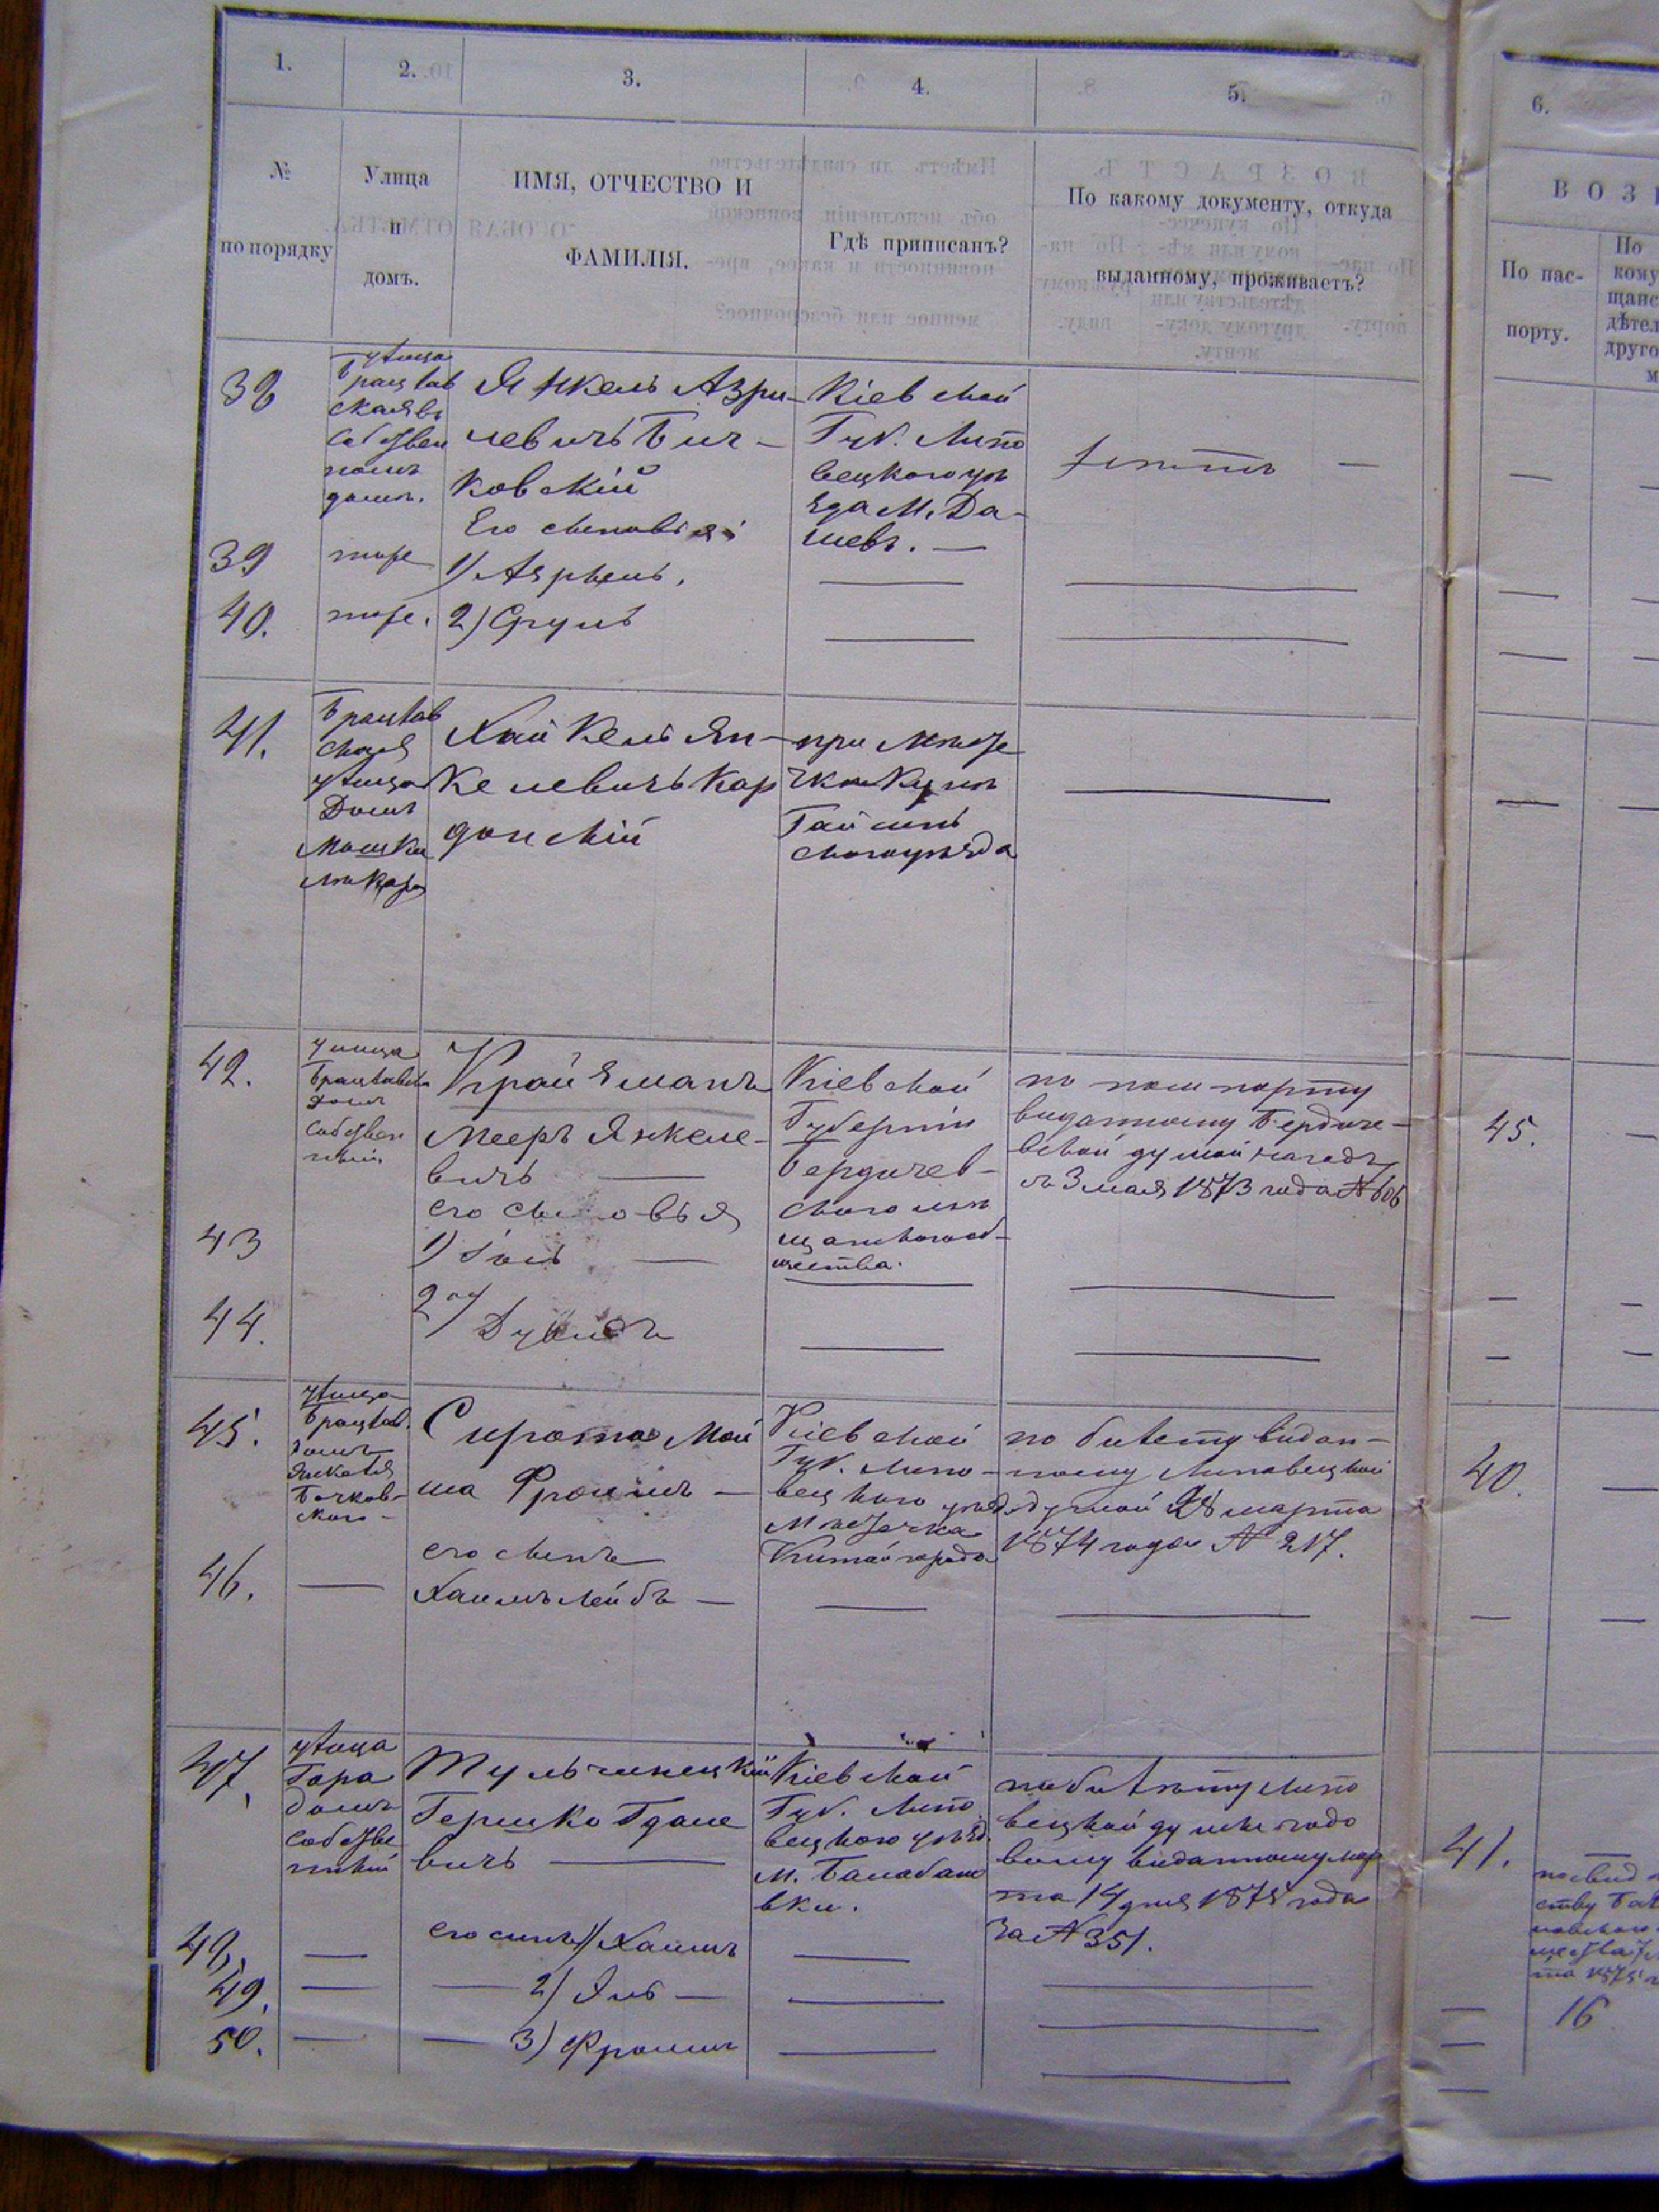 1. 2. 3. 4. 5. 6.
№ по порядку
Улица и домъ.
ИМЯ, ОТЧЕСТВО И ФАМИЛІЯ.
Гдѣ приписанъ?
По какому документу, откуда выданному, проживаетъ?
По пас-
порту.
38
улица
Брацлав
ская въ
собствен
номъ
домѣ.
Янкель Азри-
левичъ Бич-
ковскій
Его сыновья:
Кіевской
Губ. Липо
вецкого уѣ
зда М. Да-
шевъ. —
39
тоже
1) Азріель.
40.
тоже.
2) Сруль
41.
Брацлав
ская
улица
Домъ
Мошки
Хайкель Ян-
келевичъ Кор
донскій
при мѣсте
чки Кунѣ
Гайсин
ского уѣзда
42.
улица
Брацлавска
домъ
собствен
ный
Крайзманъ
Мееръ Янкеле-
вичъ —
его сыновья
Кіевской
Губерніи
Бердичев-
ского мѣ
щанского об-
щества.
по пашпорту
виданному Бердиче-
вской думой на годъ
3 мая 1873 года № 606
45.
43
1) Іось —
44.
2)
45.
улица
Брацлав.
домъ
Янкеля
Бочков-
ского -
Сирота Мой
ша Фроимъ —
его сынъ
Кіевской
Губ. Липо-
вецкого уѣзд.
Мѣстечка
Китайгорода
по билету видан-
ному Липовецкой
думой 28 марта
1874 года № 217.
40.
46.
Хаимъ Лейбъ —
47.
улица
Гора
домъ
собстве
нный
Тульчинецкій
Гершко Гдале
вичъ —
Кіевской
Губ. Липо
вецкого уѣзд.
М. Балабан
вки.
по билѣту Липо
вецкой думы годо
вому виданному мар
та 14 дня 1875 года
за № 351.
41.
48.
его сынъ 1) Хаимъ
49.
2) Эль —
50.
3) Фроимъ
16